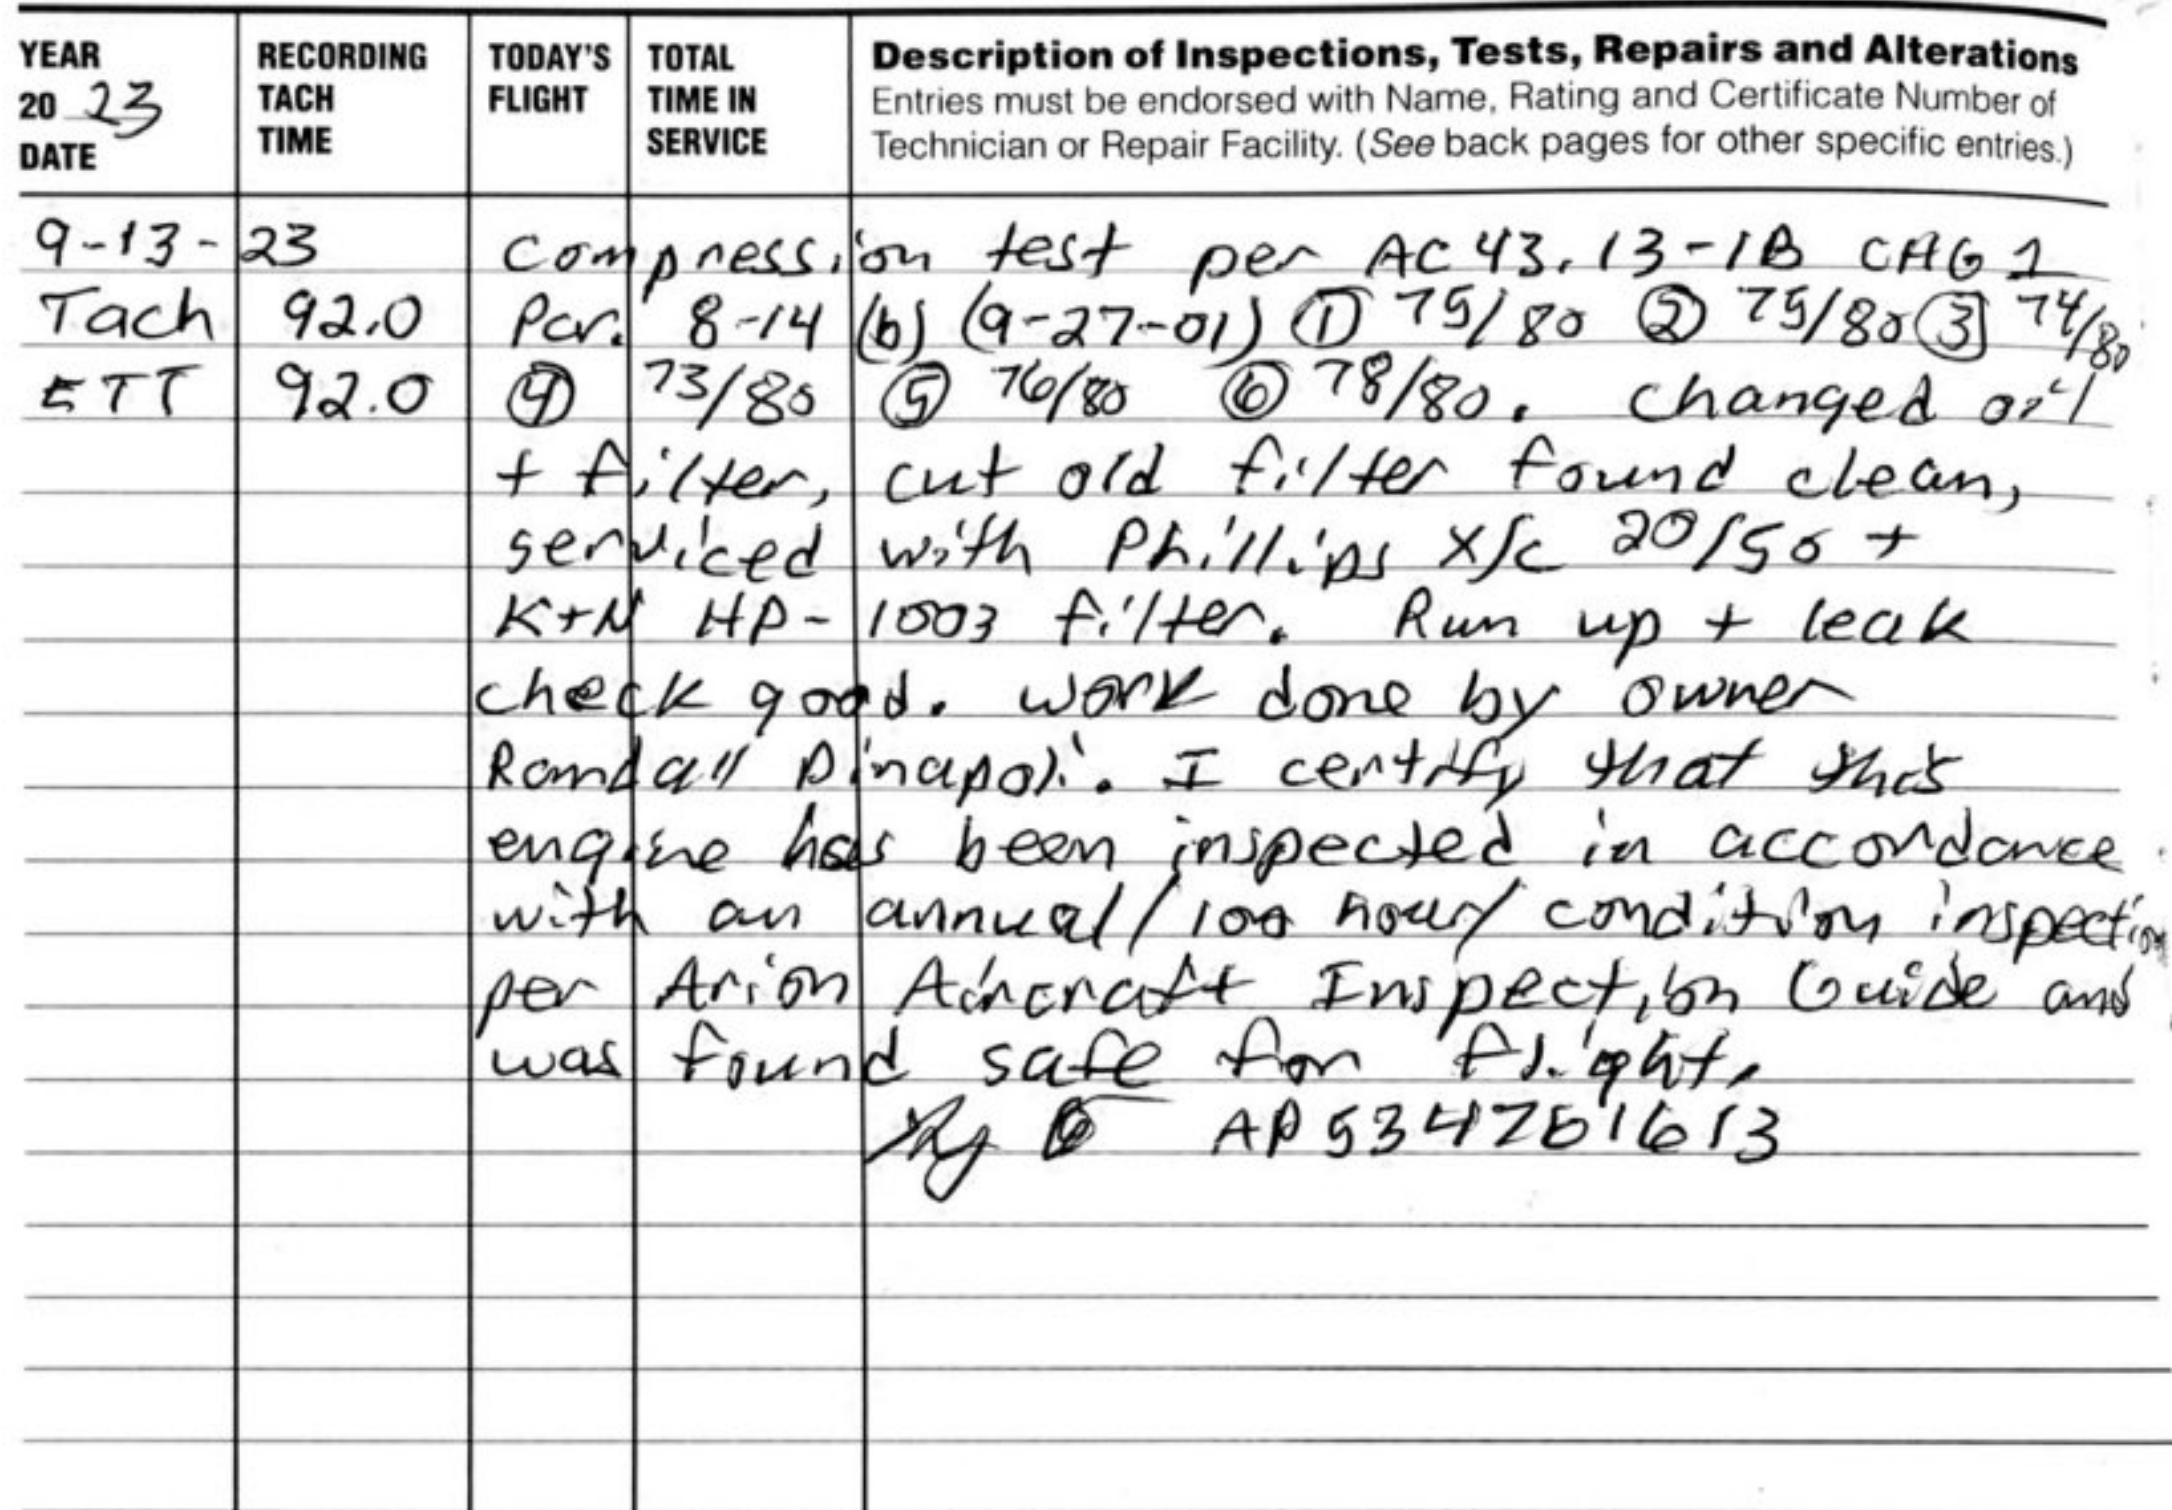 YEAR 20 23 DATE
RECORDING TACH TIME
TODAY'S FLIGHT
TOTAL TIME IN SERVICE
Description of Inspections, Tests, Repairs and Alterations
Entries must be endorsed with Name, Rating and Certificate Number of
Technician or Repair Facility. (See back pages for other specific entries.)
9-13-23 Compression test per AC 43.13-1B CHG 1
Tach 92.0 Par. 8-14 (b) (9-27-01) ① 75/80 ② 75/80 ③ 74/80
ETT 92.0 ④ 73/80 ⑤ 76/80 ⑥ 78/80. Changed oil
+ filter, cut old filter found clean,
serviced with Phillips X/C 20/50 +
K+N HP-1003 filter. Run up + leak
check good. Work done by owner
Randall Dinapoli. I certify that this
engine has been inspected in accordance
with an annual/100 hour/condition inspection
per Arion Aircraft Inspection Guide and
was found safe for flight.
AP